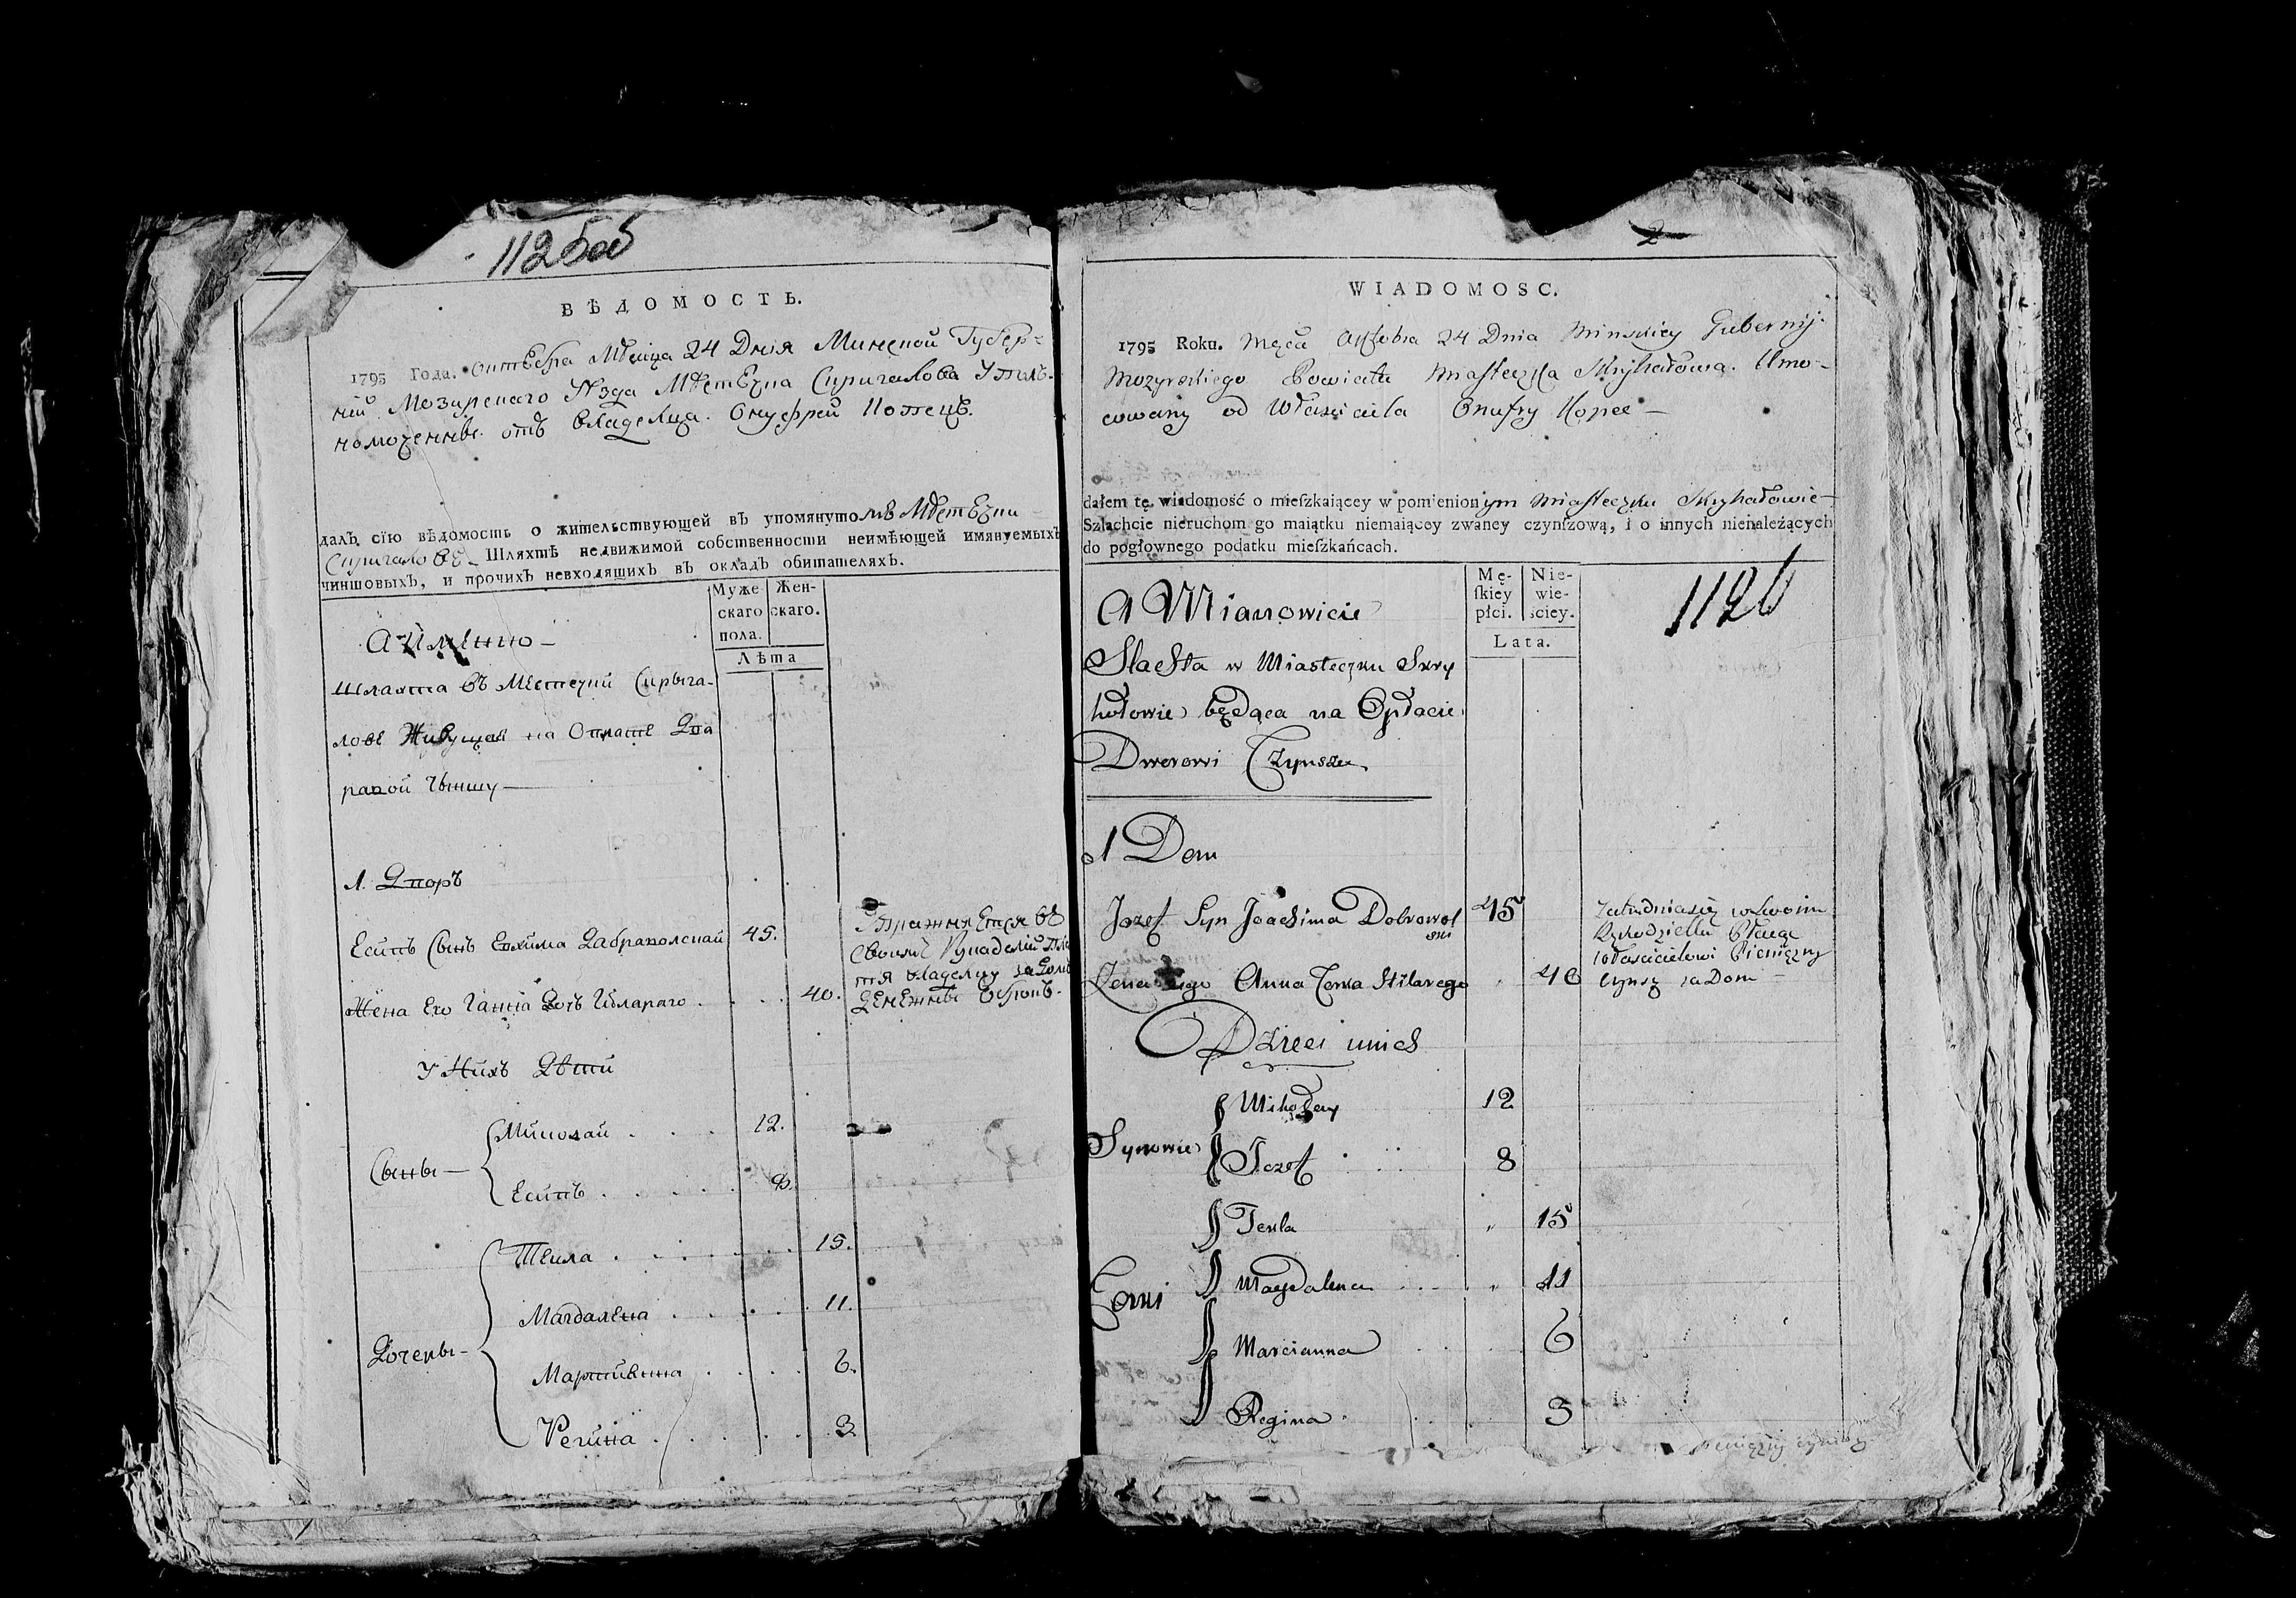 1125об
ВѢДОМОСТЬ.
1795 Года. Октебра Мѣсяца 24 Дня Минской Губер=
нiи Мозирскаго Уѣзда Мѣстечка Скригалова Упал-
номоченны отъ владелца Онуфрей Копецъ.
далъ сїю вѣдомость о жительствующей въ упомянутомъ Мѣстечки
Скригалове Шляхтѣ недвижимой собственности неимѣющей имянуемыхъ
чиншовыхъ, и прочихъ невходящихъ въ окладъ обитателяхъ.
Муже- скаго пола. Жен- скаго.
Лѣта
А Именно —
Шляхта въ Местечки Скрыга-
лове Живущая на Оплате Два
равой Чыншу —
1. Дворъ
Есипъ Сынъ Ехима Дабравольский 45.
Упражняется въ
своимъ Рукадели
владелцу
Денежны Оброкъ.
Жена Его Ганна Дочь Гиляраго 40.
У Нихъ Дети
Сыны —
Миколай 12.
Есипъ 8.
Дочеры —
Текля 15.
Магдалена 11.
Мартиянна 6.
Регина 3.
2
WIADOMOSC.
1795 Roku. Mąca Októbra 24 Dnia Minskiey Gubernij.
Mozyrskiego Powiatu Miasteczka Skryhałowa. Umo-
cowany od Własciciela Onufry Kopec —
dałem tę wiadomość o mieſzkaiącey w pomienionym Miasteczku Skryhałowie —
Szlachcie nieruchom go maiątku niemaiącey zwaney czynſzową, i o innych nienależących
do pogłownego podatku mieſzkańcach.
Mę- ſkiey płci. Nie- wie- ściey.
Lata.
1126
A Mianowicie
Slachta w Miasteczku Skry
hołowie będąca na Opłacie
Dworowi Czynszu.
1 Dom
Jozef Syn Joachima Dobrowol
ski 45
Zatrudniasię w swoim
Rękodziełłu Płacąc
właścicielowi Pieniężny
czynsz za Dom —
Żena Jego Anna Corka Hilarego 40
Dzieci unich
Synowie
Mikołay 12
Jozef 8
Corki
Tekla 15
Magdalena 11
Marcianna 6
Regina 3